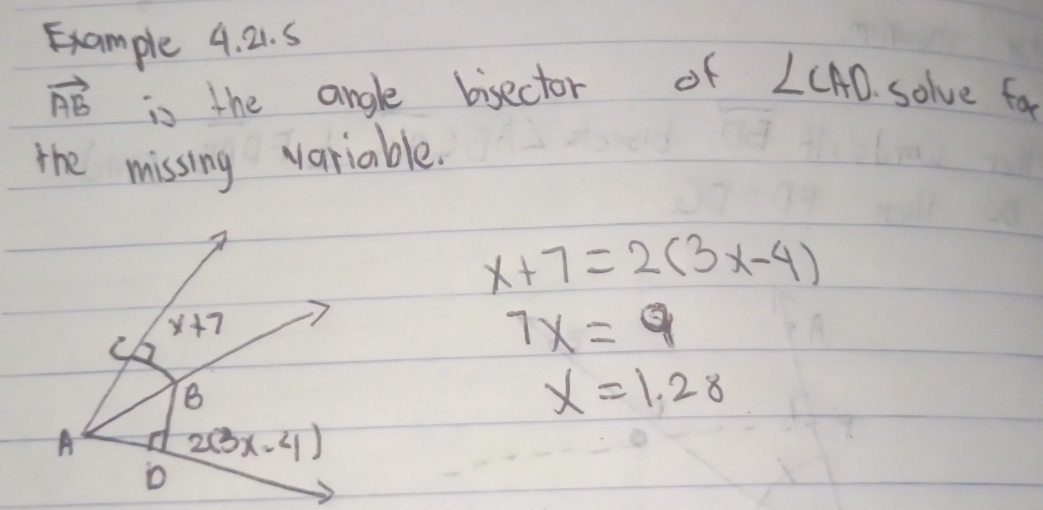 Example 4.21.5
AB is the angle bisector of ∠CAD. solve for
the missing variable.
x+7=2(3x-4)
x+7
7x = 9
C
B
x = 1.28
A
2(3x-4)
D